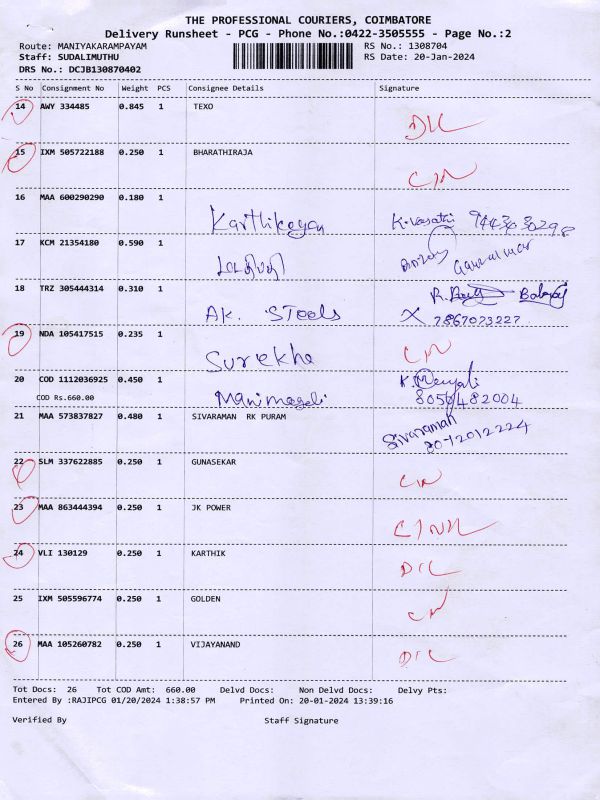 THE PROFESSIONAL COURIERS, COIMBATORE
Delivery Runsheet - PCG - Phone No.:0422-3505555 - Page No.:2
Route: MANIYAKARAMPAYAM RS No.: 1308704
Staff: SUDALIMUTHU RS Date: 20-Jan-2024
DRS No.: DCJB130870402
S No Consignment No Weight PCS Consignee Details Signature
14 AWY 334485 0.845 1 TEXO
15 IXM 505722188 0.250 1 BHARATHIRAJA
16 MAA 600290290 0.180 1 Karthikeyan
17 KCM 21354180 0.590 1
18 TRZ 305444314 0.310 1 AK. Steels 7867073227
19 NDA 105417515 0.235 1 Surekha
20 COD 1112036925 0.450 1 Manimegali
COD Rs.660.00
21 MAA 573837827 0.480 1 SIVARAMAN RK PURAM Sivaraman
22 SLM 337622885 0.250 1 GUNASEKAR
23 MAA 863444394 0.250 1 JK POWER
24 VLI 130129 0.250 1 KARTHIK
25 IXM 505596774 0.250 1 GOLDEN
26 MAA 105260782 0.250 1 VIJAYANAND
Tot Docs: 26 Tot COD Amt: 660.00 Delvd Docs: Non Delvd Docs: Delvy Pts:
Entered By :RAJIPCG 01/20/2024 1:38:57 PM Printed On: 20-01-2024 13:39:16
Verified By Staff Signature